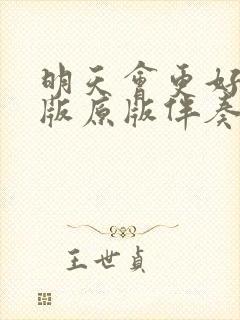 明天会更好
版原版伴奏
王世貞